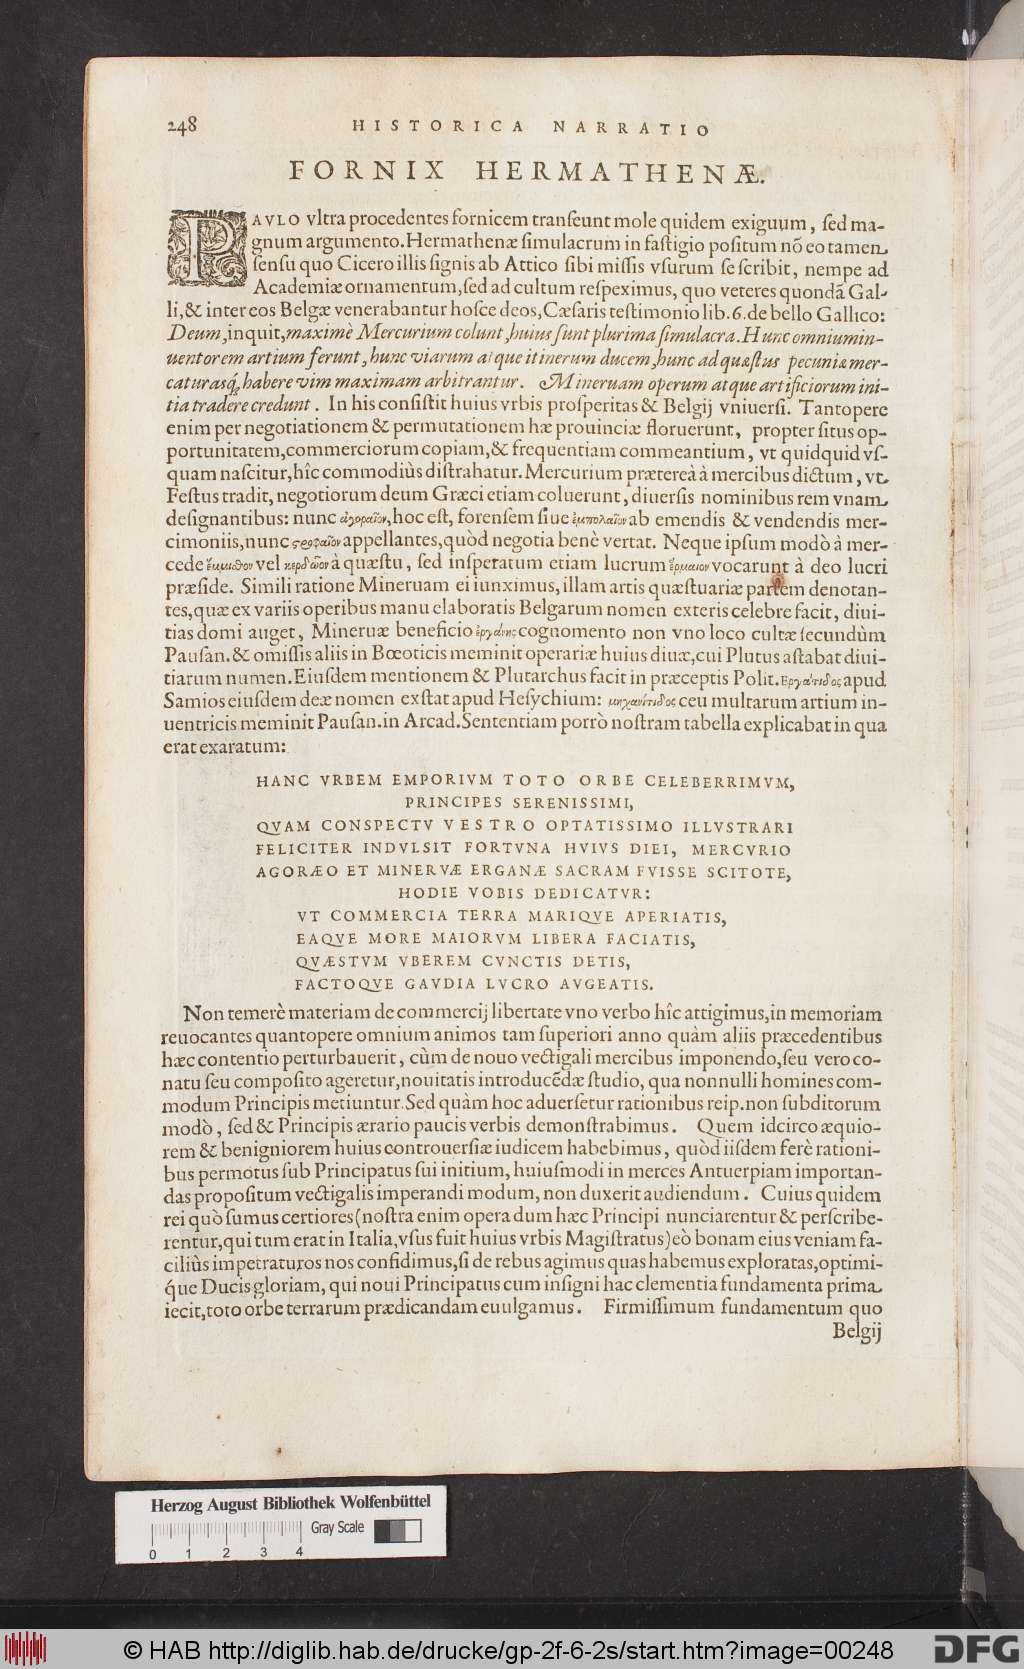 248 HISTORICA NARRATIO
FORNIX HERMATHENÆ.
PAVLO vltra procedentes fornicem transeunt mole quidem exiguum, sed ma-
gnum argumento. Hermathenæ simulacrum in fastigio positum nō eo tamen
sensu quo Cicero illis signis ab Attico sibi missis vsurum se scribit, nempe ad
Academiæ ornamentum, sed ad cultum respeximus, quo veteres quondā Gal-
li, & inter eos Belgæ venerabantur hosce deos, Cæsaris testimonio lib. 6. de bello Gallico:
Deum, inquit, maximè Mercurium colunt, huius sunt plurima simulacra. Hunc omnium in-
uentorem artium ferunt, hunc viarum atque itinerum ducem, hunc ad quæstus pecuniæ mer-
caturasq́; habere vim maximam arbitrantur. Mineruam operum atque artificiorum ini-
tia tradere credunt. In his consistit huius vrbis prosperitas & Belgij vniuersi. Tantopere
enim per negotiationem & permutationem hæ prouinciæ floruerunt, propter situs op-
portunitatem, commerciorum copiam, & frequentiam commeantium, vt quidquid vs-
quam nascitur, hîc commodiùs distrahatur. Mercurium prætereà à mercibus dictum, vt
Festus tradit, negotiorum deum Græci etiam coluerunt, diuersis nominibus rem vnam
designantibus: nunc ἀγοραῖον, hoc est, forensem siue ἐμπολαῖον ab emendis & vendendis mer-
cimoniis, nunc στροφαῖον appellantes, quòd negotia benè vertat. Neque ipsum modò à mer-
cede ἔμμισθον vel κερδῶον à quæstu, sed insperatum etiam lucrum ἕρμαιον vocarunt à deo lucri
præside. Simili ratione Mineruam ei iunximus, illam artis quæstuariæ partem denotan-
tes, quæ ex variis operibus manu elaboratis Belgarum nomen exteris celebre facit, diui-
tias domi auget, Mineruæ beneficio ἐργάνης cognomento non vno loco cultæ secundùm
Pausan. & omissis aliis in Bœoticis meminit operariæ huius diuæ, cui Plutus astabat diui-
tiarum numen. Eiusdem mentionem & Plutarchus facit in præceptis Polit. Ἐργάτιδος apud
Samios eiusdem deæ nomen exstat apud Hesychium: μηχανίτιδος ceu multarum artium in-
uentricis meminit Pausan. in Arcad. Sententiam porrò nostram tabella explicabat in qua
erat exaratum:
HANC VRBEM EMPORIVM TOTO ORBE CELEBERRIMVM,
PRINCIPES SERENISSIMI,
QVAM CONSPECTV VESTRO OPTATISSIMO ILLVSTRARI
FELICITER INDVLSIT FORTVNA HVIVS DIEI, MERCVRIO
AGORÆO ET MINERVÆ ERGANÆ SACRAM FVISSE SCITOTE,
HODIE VOBIS DEDICATVR:
VT COMMERCIA TERRA MARIQVE APERIATIS,
EAQVE MORE MAIORVM LIBERA FACIATIS,
QVÆSTVM VBEREM CVNCTIS DETIS,
FACTOQVE GAVDIA LVCRO AVGEATIS.
Non temerè materiam de commercij libertate vno verbo hîc attigimus, in memoriam
reuocantes quantopere omnium animos tam superiori anno quàm aliis præcedentibus
hæc contentio perturbauerit, cùm de nouo vectigali mercibus imponendo, seu vero co-
natu seu composito ageretur, nouitatis introducēdæ studio, qua nonnulli homines com-
modum Principis metiuntur. Sed quàm hoc aduersetur rationibus reip. non subditorum
modò, sed & Principis ærario paucis verbis demonstrabimus. Quem idcirco æquio-
rem & benigniorem huius controuersiæ iudicem habebimus, quòd iisdem ferè rationi-
bus permotus sub Principatus sui initium, huiusmodi in merces Antuerpiam importan-
das propositum vectigalis imperandi modum, non duxerit audiendum. Cuius quidem
rei quò sumus certiores (nostra enim opera dum hæc Principi nunciarentur & perscribe-
rentur, qui tum erat in Italia, vsus fuit huius vrbis Magistratus) eò bonam eius veniam fa-
ciliùs impetraturos nos confidimus, si de rebus agimus quas habemus exploratas, optimi-
q́ue Ducis gloriam, qui noui Principatus cum insigni hac clementia fundamenta prima
iecit, toto orbe terrarum prædicandam euulgamus. Firmissimum fundamentum quo
Belgij
Herzog August Bibliothek Wolfenbüttel
Gray Scale
0 1 2 3 4
© HAB http://diglib.hab.de/drucke/gp-2f-6-2s/start.htm?image=00248
DFG